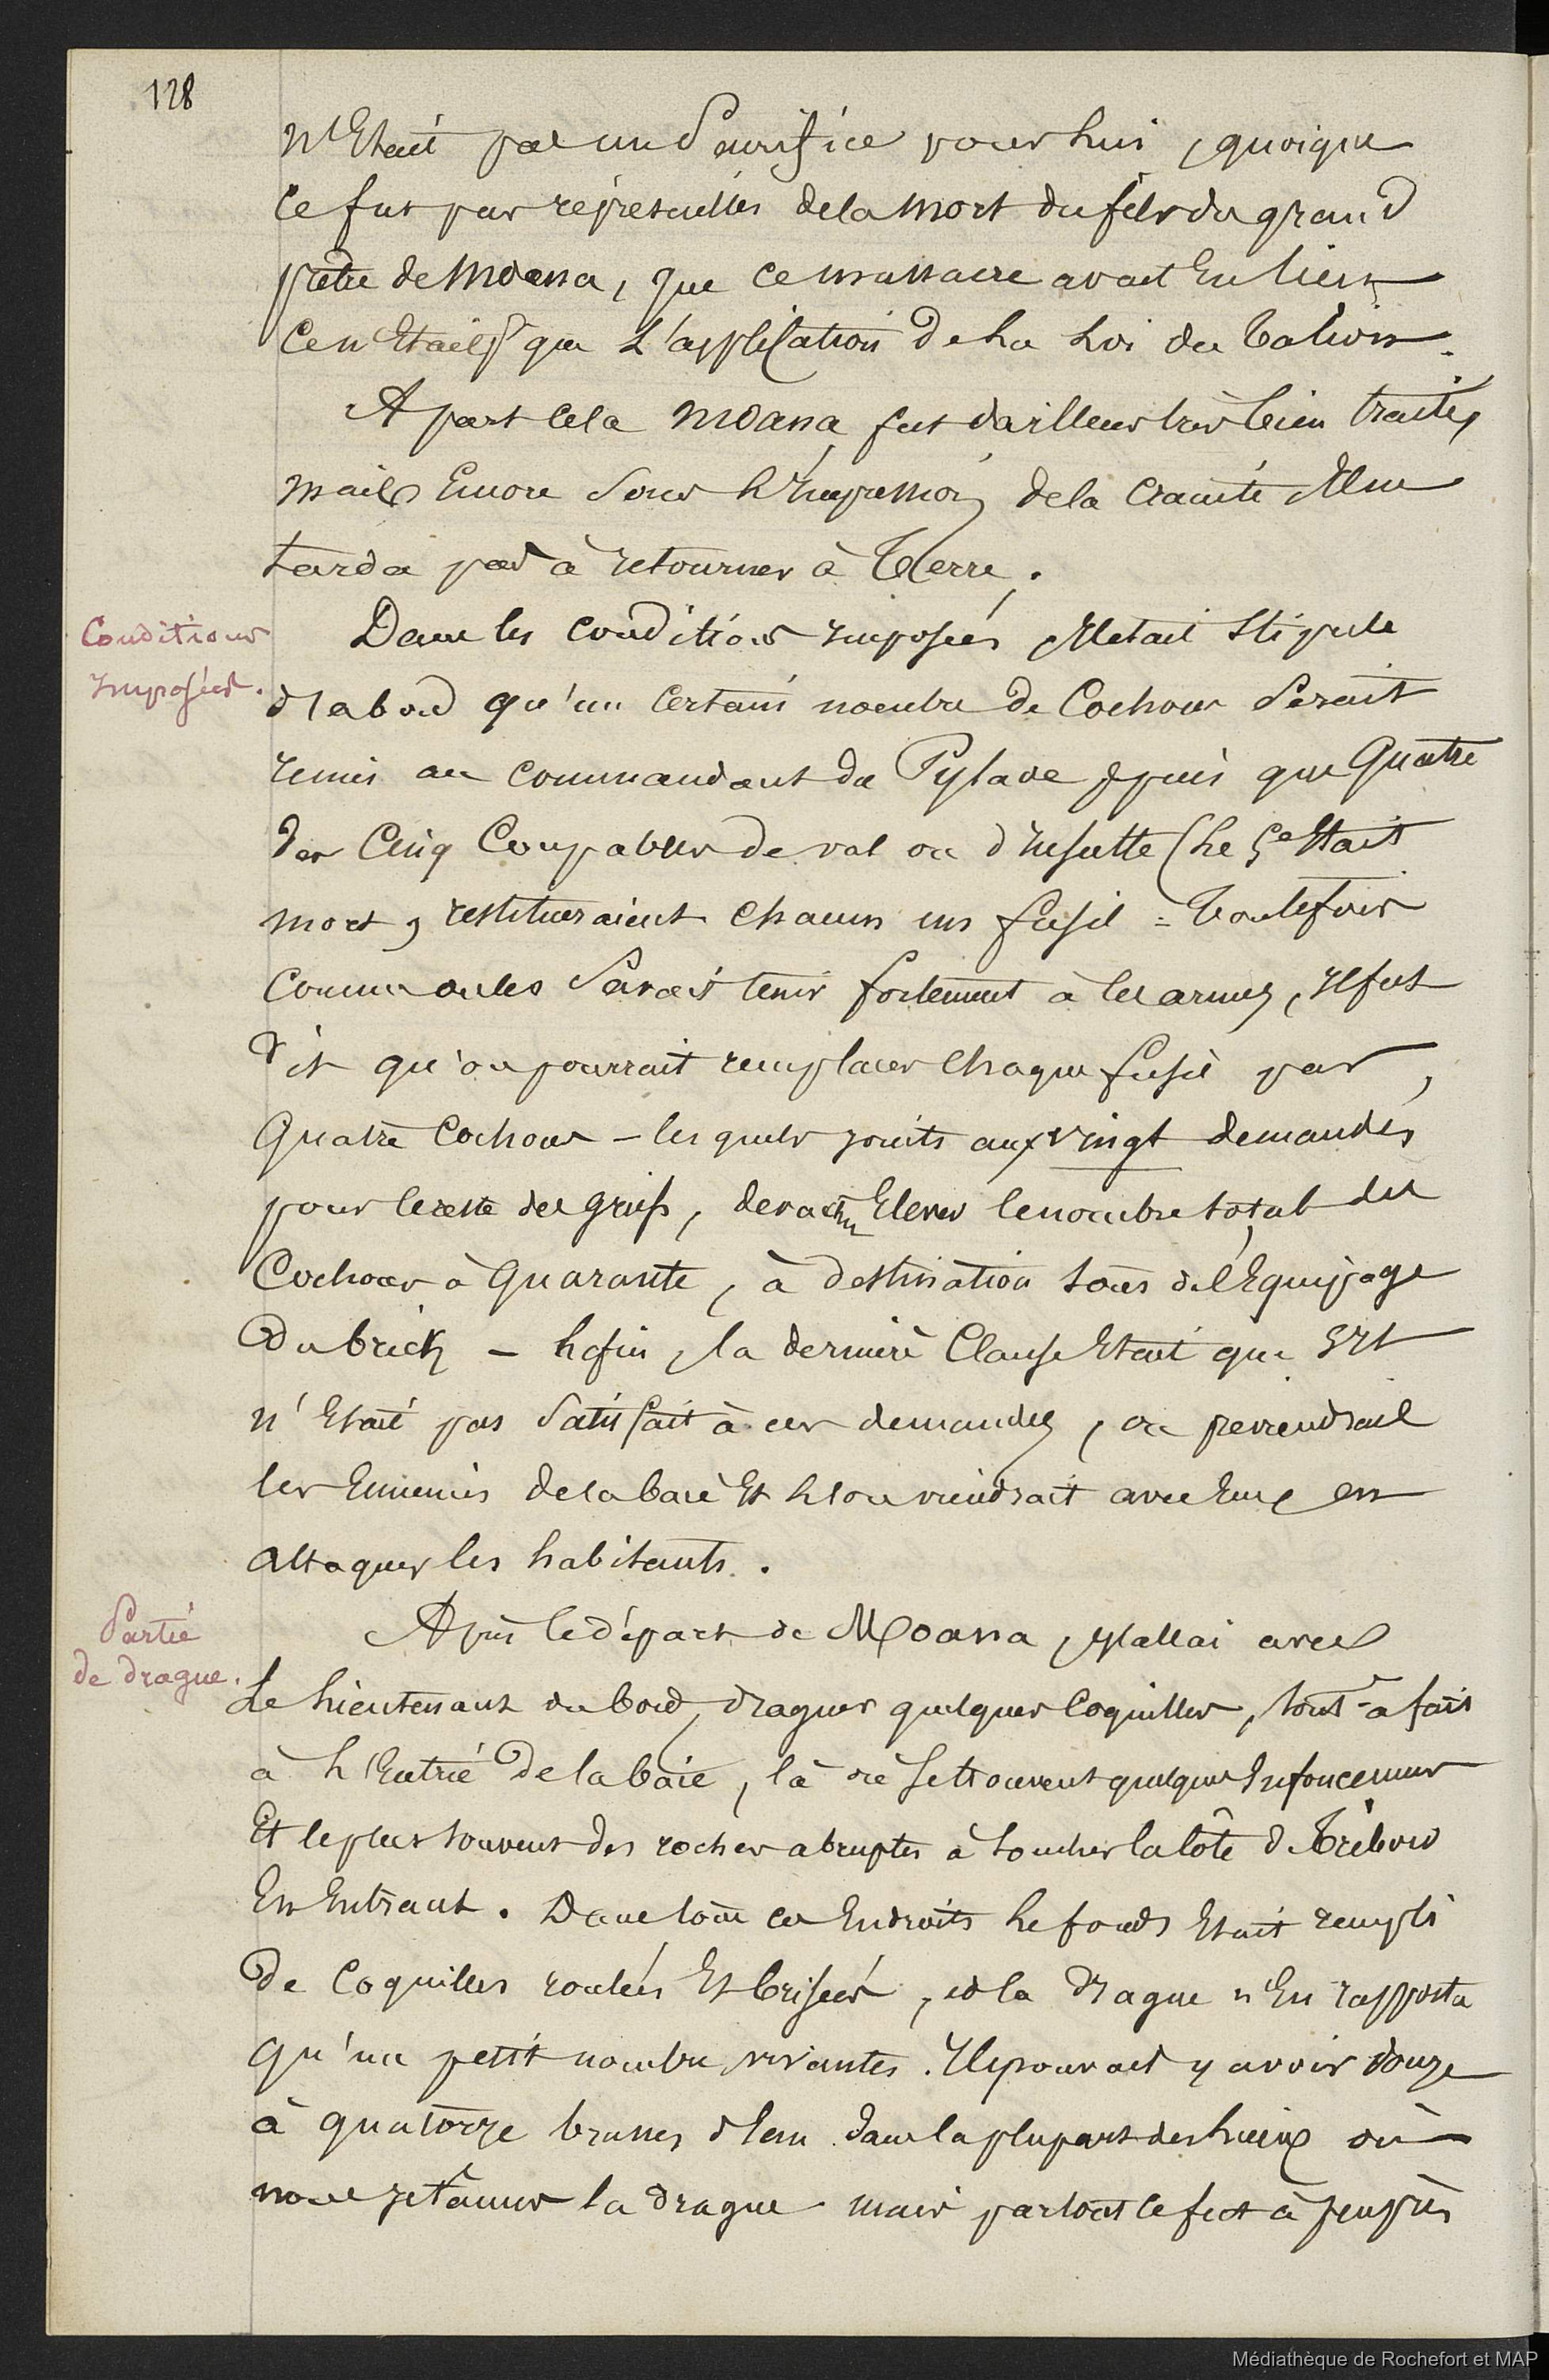 128
N'Etait pas un Sacrifice pour lui, quoique
ce fut par réprésailles de la Mort du fils du grand
prêtre de Moana, que ce massacre avait Eu lieu
Ce n'Etait que L'application De La Loi du Talion.
A part cela Moana fut d'ailleurs très bien traité,
mais Encore Sous L'Impression de la Crainte Il ne
tarda pas à retourner à Terre.
Conditions
Imposées.
Dans les conditions Imposées Il était Stipulé
d'abord qu'un Certain nombre de Cochons Serait
remis au commandant du Pylade & puis que Quatre
des Cinq Coupables de vol ou d'Insulte (Le 5e Etait
mort, restitueraient chacun un fusil = Toutefois
Comme on les Savait tenir fortement à les armes, Il fut
dit qu'on pourrait remplacer Chaque fusil par,
Quatre Cochons - les quels joints aux vingt demandés
pour le reste des griefs, devait Elever le nombre total des
Cochons à Quarante, à destination tous de l'Equipage
Du brick - Enfin, la dernière Clause Etait que S'Il
n'Etait pas Satisfait à ces demandes, on prendrait
les Ennemis de la baie Et L'on viendrait avec Eux en
attaquer les habitants.
Partie
de drague.
Après le départ de Moana, j'allai avec
Le Lieutenant du bord, draguer quelques Coquilles, tout-à fait
à L'Entrée De la baie, là où Se trouvent quelques Enfoncemens
Et le plus souvent des rochers abruptes à toucher la Côte De Tribord
En Entrant. Dans tous ces Endroits Le fonds Etait rempli
De Coquilles roulées Et brisées, et la Drague n'En rapporta
qu'un petit nombre vivantes. Il pouvait y avoir douze
à quatorze brasses d'Eau dans la plupart des Lieux où
nous jetâmes la drague mais partout ce fut à peu près
Médiathèque de Rochefort et MAP